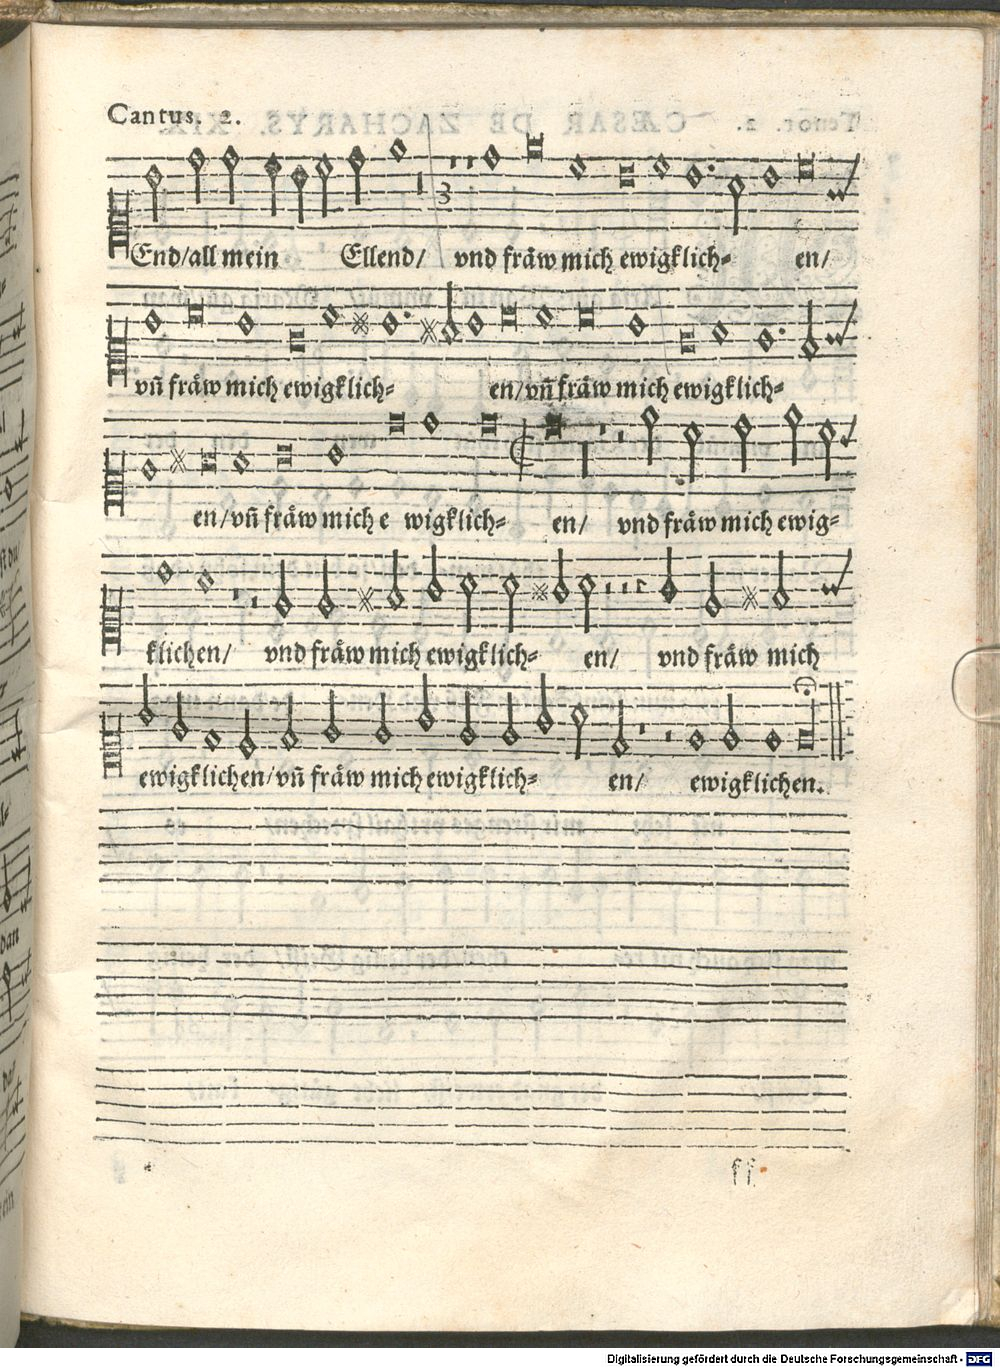 Cantus. 2.
3
End/all mein Ellend/ vnd fräw mich ewigklich= en/
vñ fräw mich ewigklich= en/vñ fräw mich ewigklich=
en/vñ fräw mich e wigklich= en/ vnd fräw mich ewig=
klichen/ vnd fräw mich ewigklich= en/ vnd fräw mich
ewigklichen/vñ fräw mich ewigklich= en/ ewigklichen.
ff
Digitalisierung gefördert durch die Deutsche Forschungsgemeinschaft - DFG